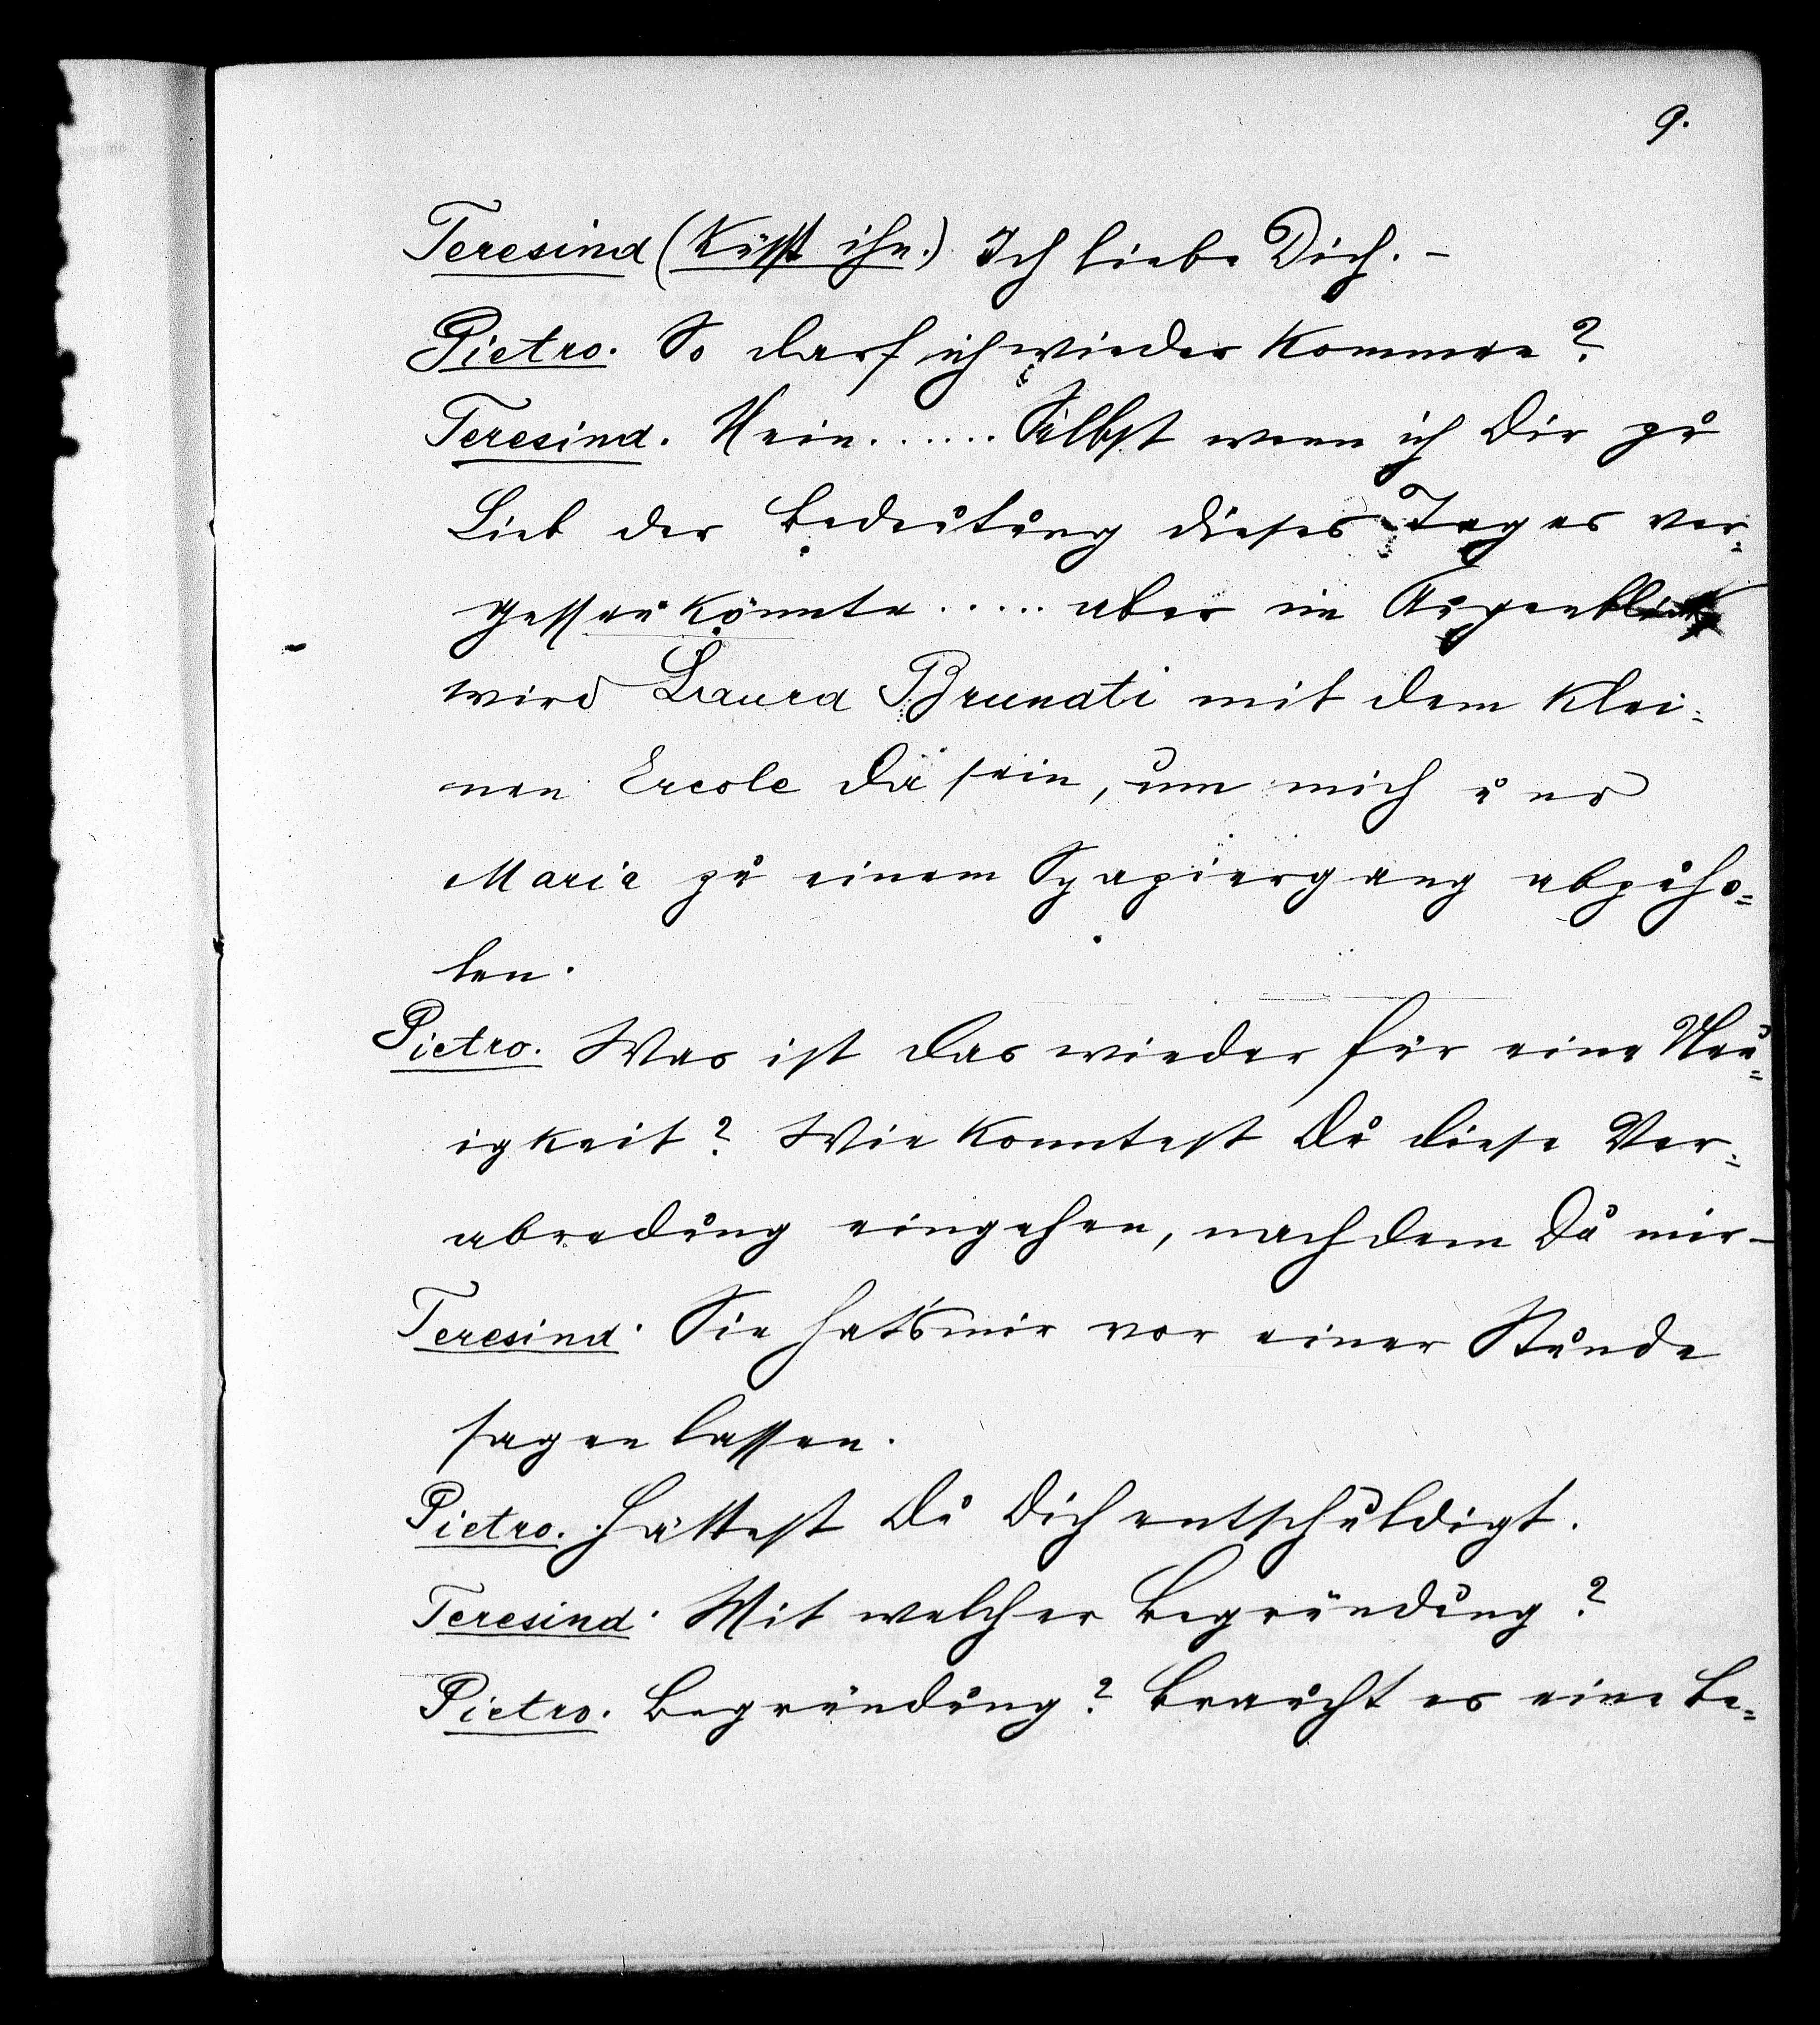 9.
Teresina (küßt ihn.) Ich liebe Dich. -
Pietro. So darf ich wieder kommen?
Teresina. Nein...... Selbst wenn ich Dir zu
Lieb der Bedeutung dieses Tages ver=
gessen könnte..... aber im Augenblick
wird Laura Brunati mit dem klei=
nen Ercole da sein, um mich und
Maria zu einem Spaziergang abzuho=
len.
Pietro. Was ist das wieder für eine Neu=
igkeit? Wie konntest Du diese Ver=
abredung eingehen, nachdem Du mir-
Teresina. Sie hat's mir vor einer Stunde
sagen lassen.
Pietro. Hättest Du Dich entschuldigt.
Teresina. Mit welcher Begründung?
Pietro. Begründung? Braucht es eine Be=